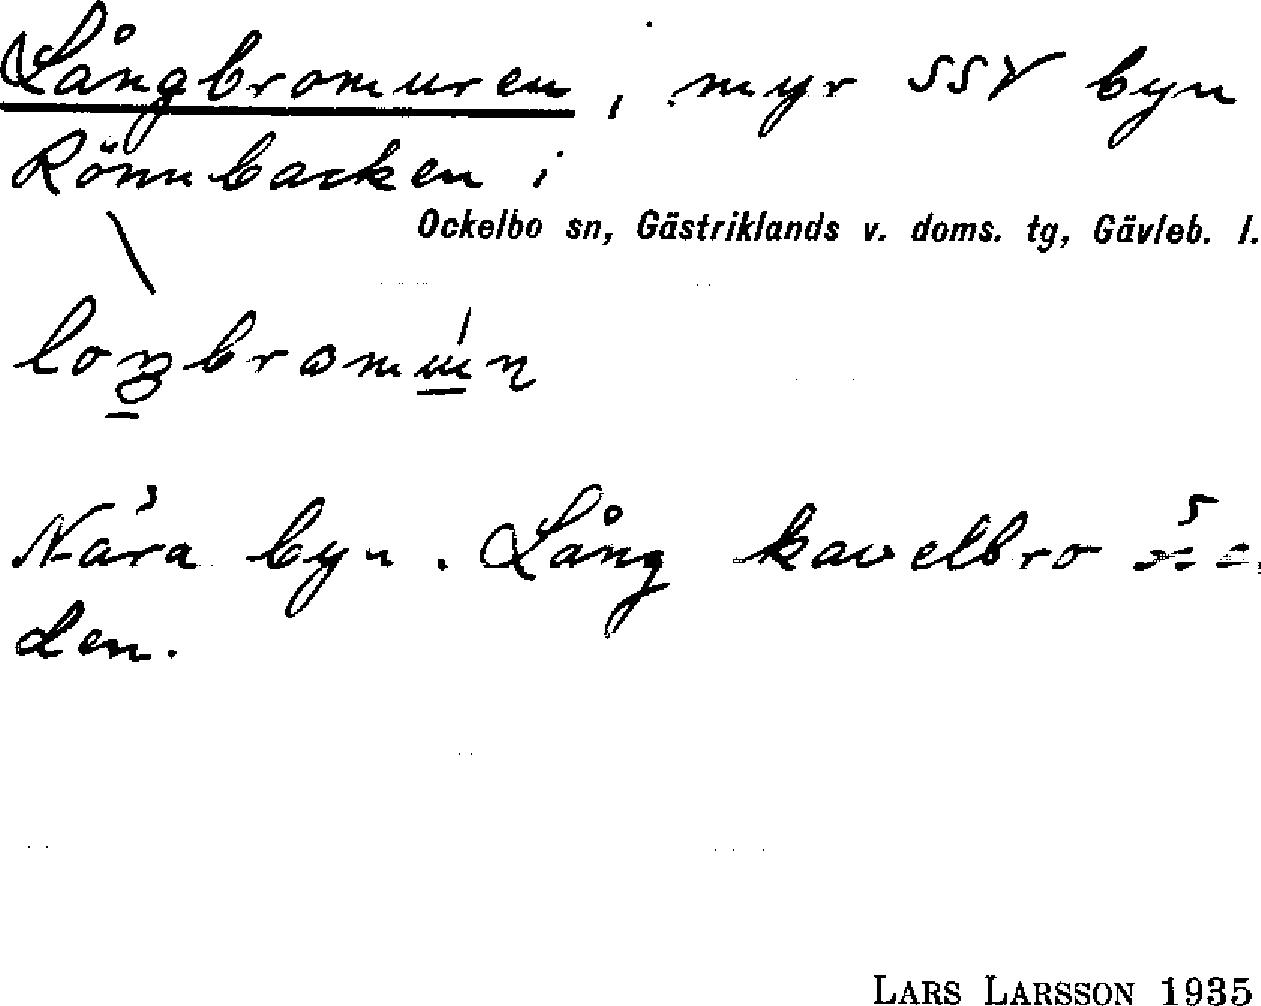 Långbromuren, myr SSV byn
Rönnbacken i
Ockelbo sn, Gästriklands v. doms. tg, Gävleb. l.
Nära byn. Lång kavelbro
den.
LARS LARSSON 1935